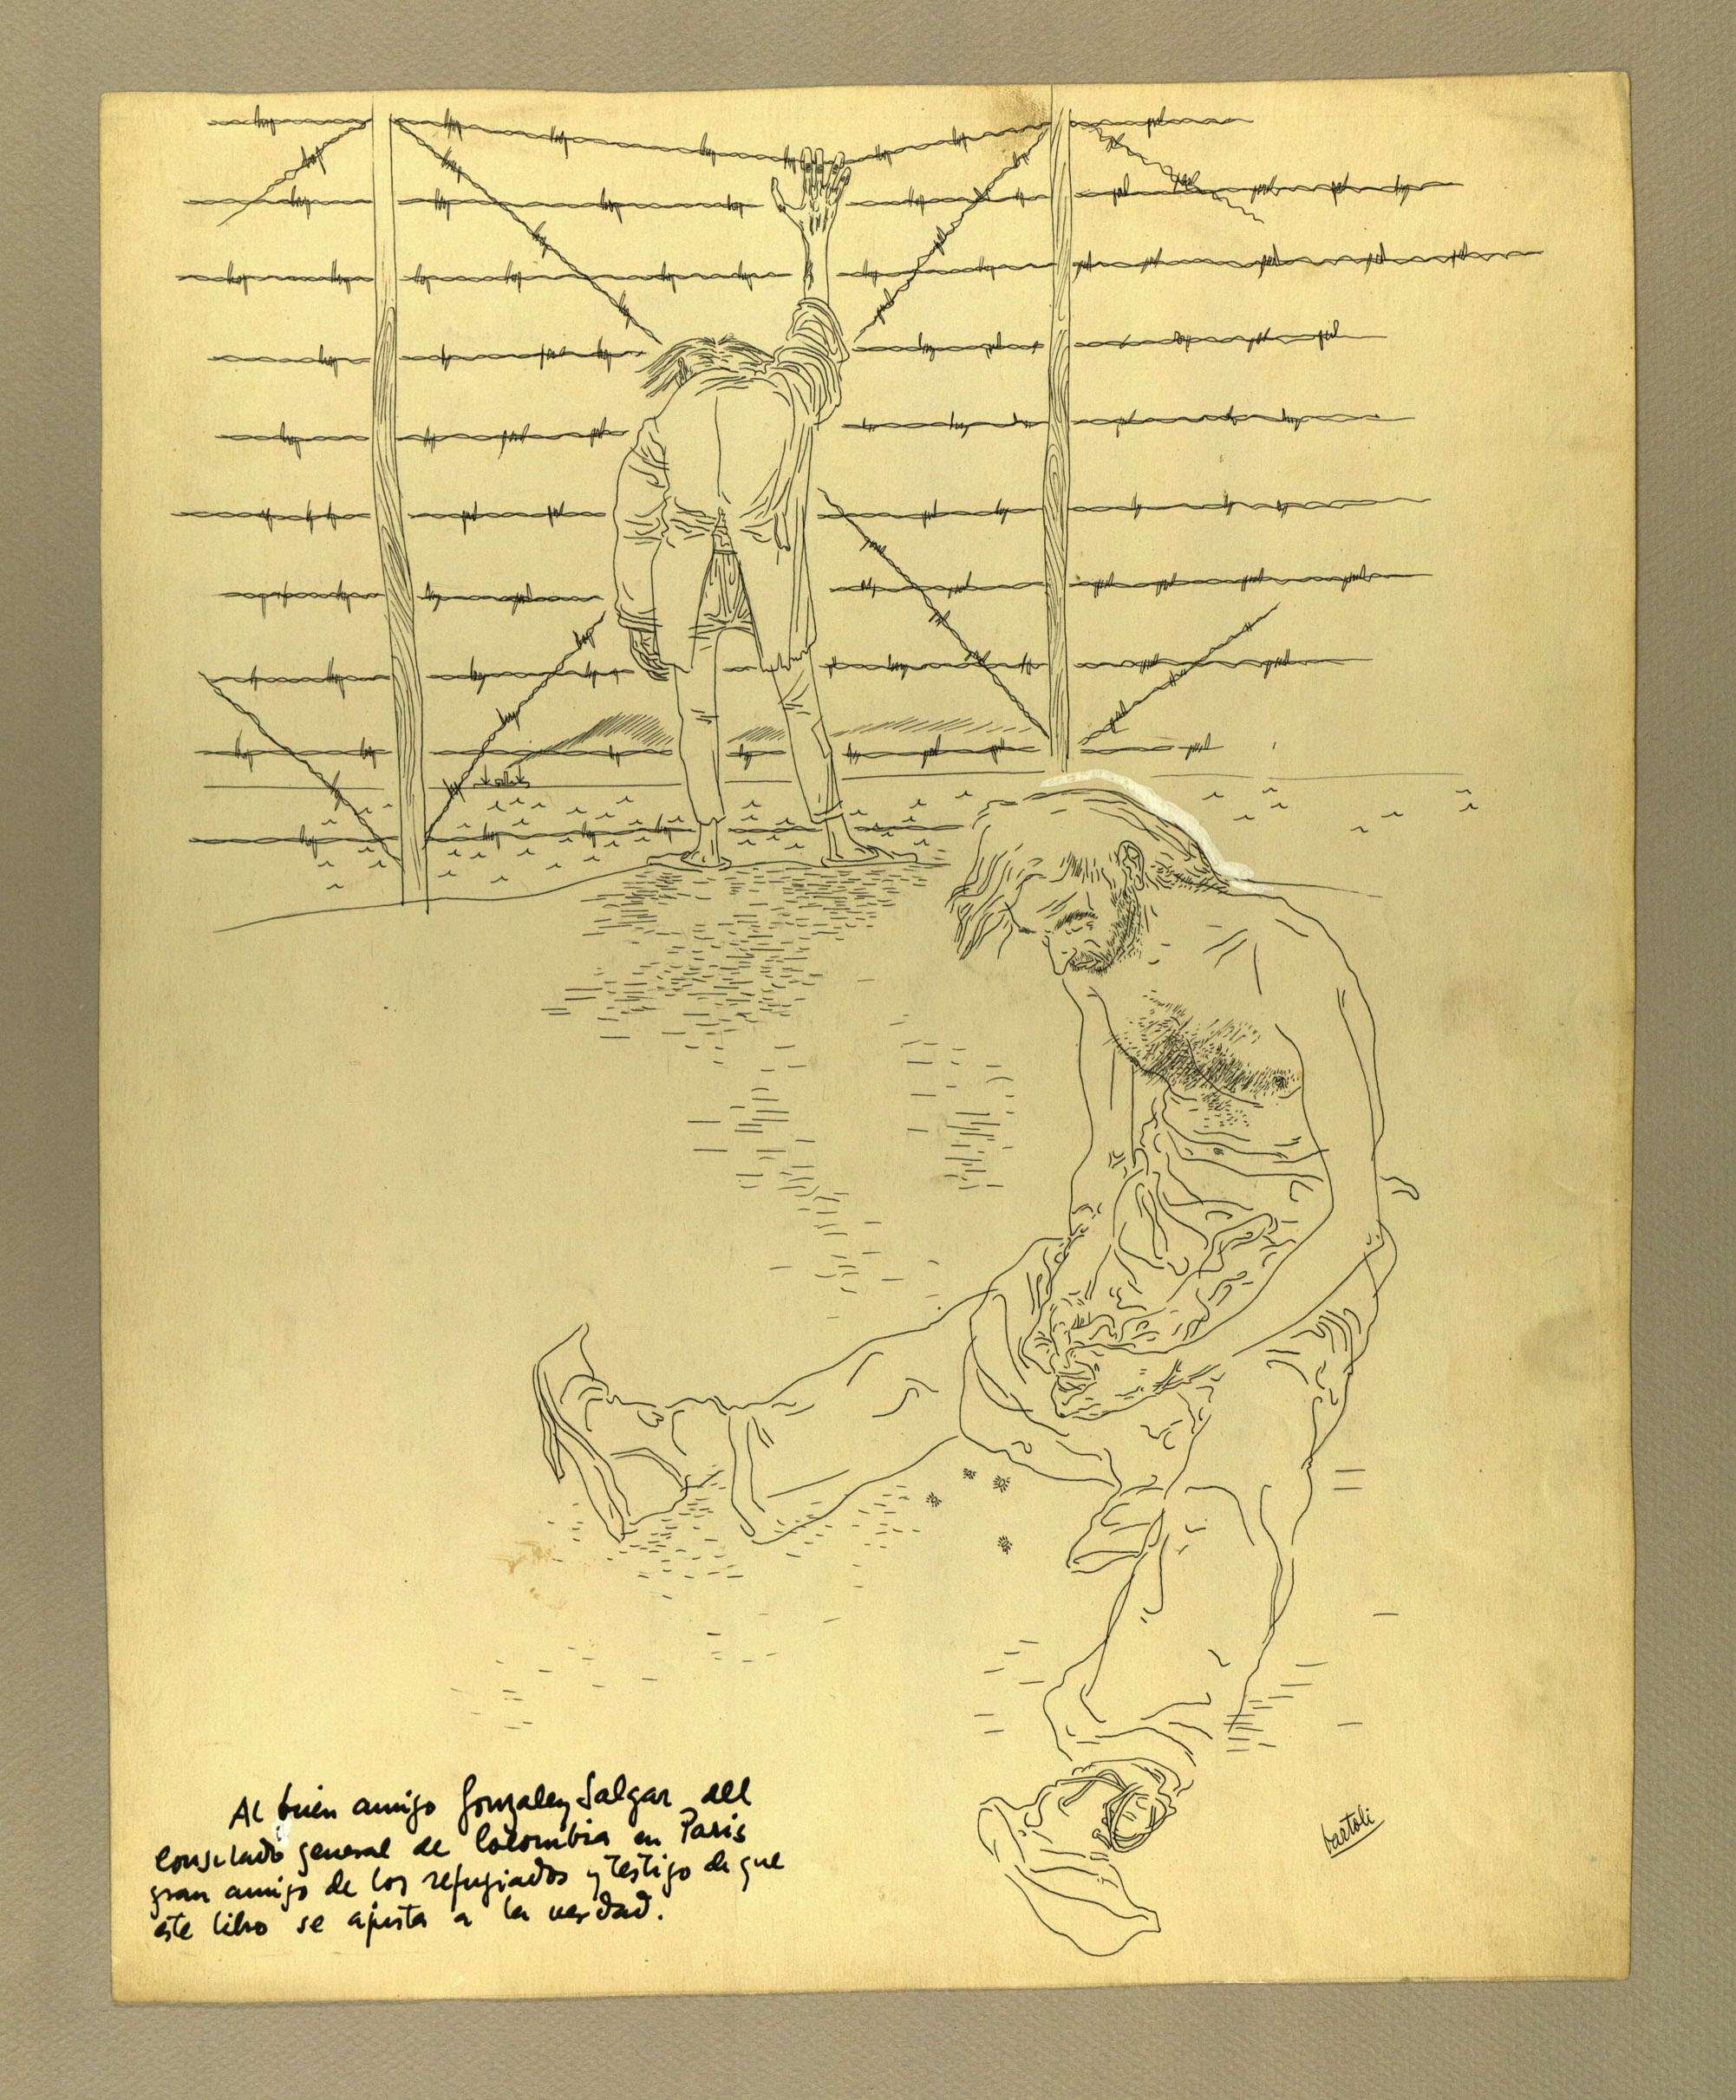 Al buen amigo Gonzalez Salgar del
Consulado general de Colombia en Paris
gran amigo de los refugiados y testigo de que
este libro se ajusta a la verdad.
bartoli